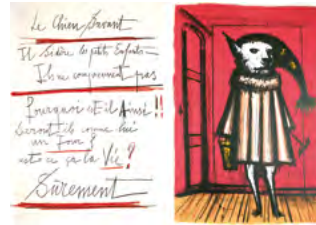 Le Chien Savant
Il Sidère les petits Enfants
Ils ne comprennent pas
Pourquoi est il Ainsi !!
Seront ils comme lui
un Jour ?
est ce ça la Vie ?
Sûrement